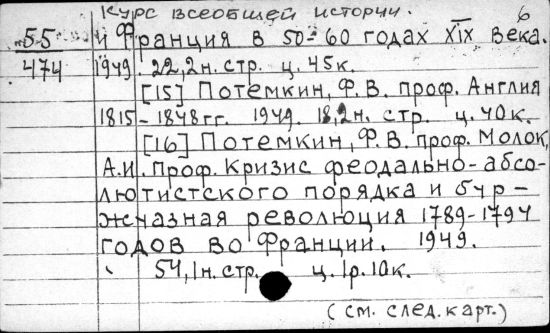 Курс всеобщей истории. 6
55 и Франция в 50-60 годах XIX века.
474 1949. 22,2н.стр. ц. 45к.
[15] Потемкин, Ф.В. проф. Англия
1815-1848гг. 1949. 18,2н. стр. ц. 40к.
[16] Потемкин, Ф.В. проф. Молок,
А.И. проф. Кризис феодально-абсо-
лютистского порядка и бур-
жуазная революция 1789-1794
годов во Франции. 1949.
54,1н.стр. ц. 1р.10к.
(см. след.карт.)